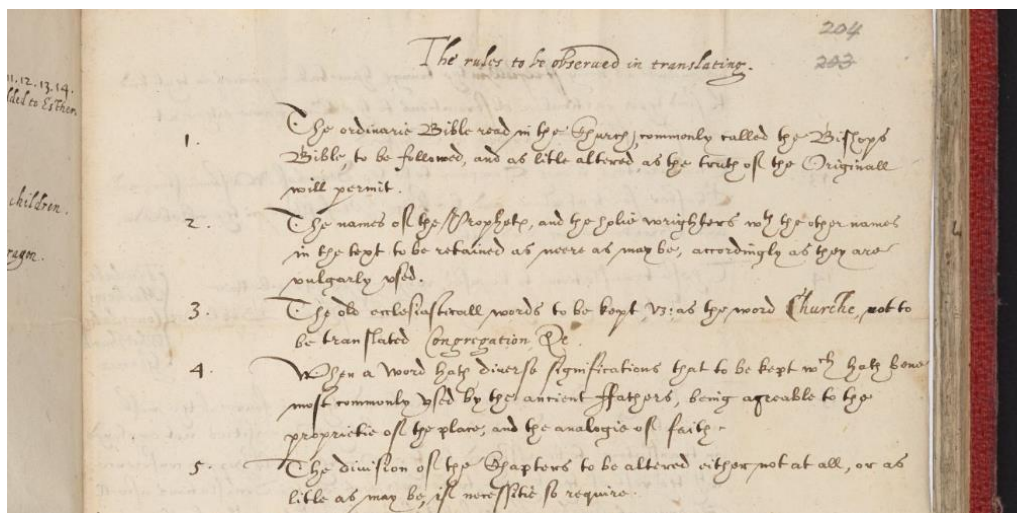 204
203
The rules to be obserued in translating.
11.12.13.14.
ded to Esther.
children.
ragon.
1. The ordinarie Bible read in the Church, commonly called the Bishops
Bible, to be followed, and as litle altered as the truth of the Originall
will permit.
2. The names of the Prophets, and the holie wrighters wth the other names
in the text to be retained as neere as may be, accordingly as they are
vulgarly vsed.
3. The old ecclesiasticall words to be kept vz: as the word Churche, not to
be translated Congregation, &c.
4. When a word hath diverse significations that to be kept wch hath bene
most commonly vsed by the ancient ffathers, being agreable to the
proprietie of the place, and the analogie of faith.
5. The division of the Chapters to be altered either not at all, or as
litle as may be, if necessitie so require.